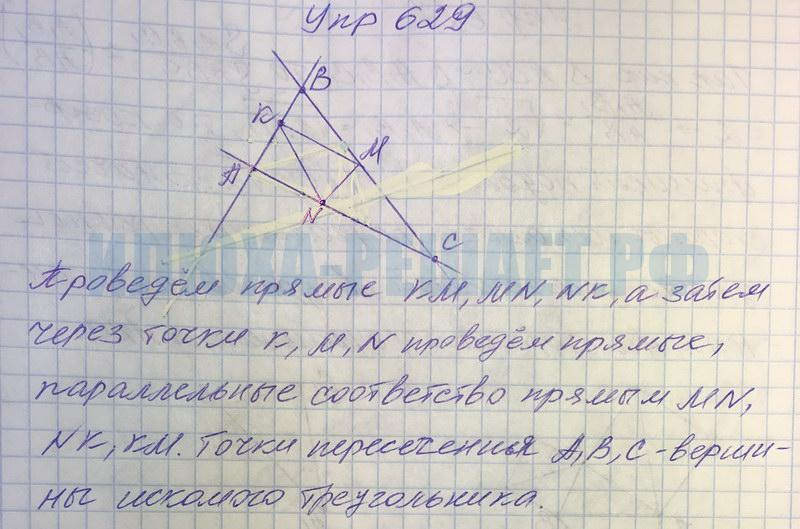 Упр 629
В
К
М
А
N
С
ИЛЮХА-РЕШАЕТ.РФ
Проведём прямые КМ, MN, NK, а затем
через точки К, М, N проведём прямые,
параллельные соответство прямым MN,
NK, КМ. Точки пересечения А, В, С - верши-
ны искомого треугольника.